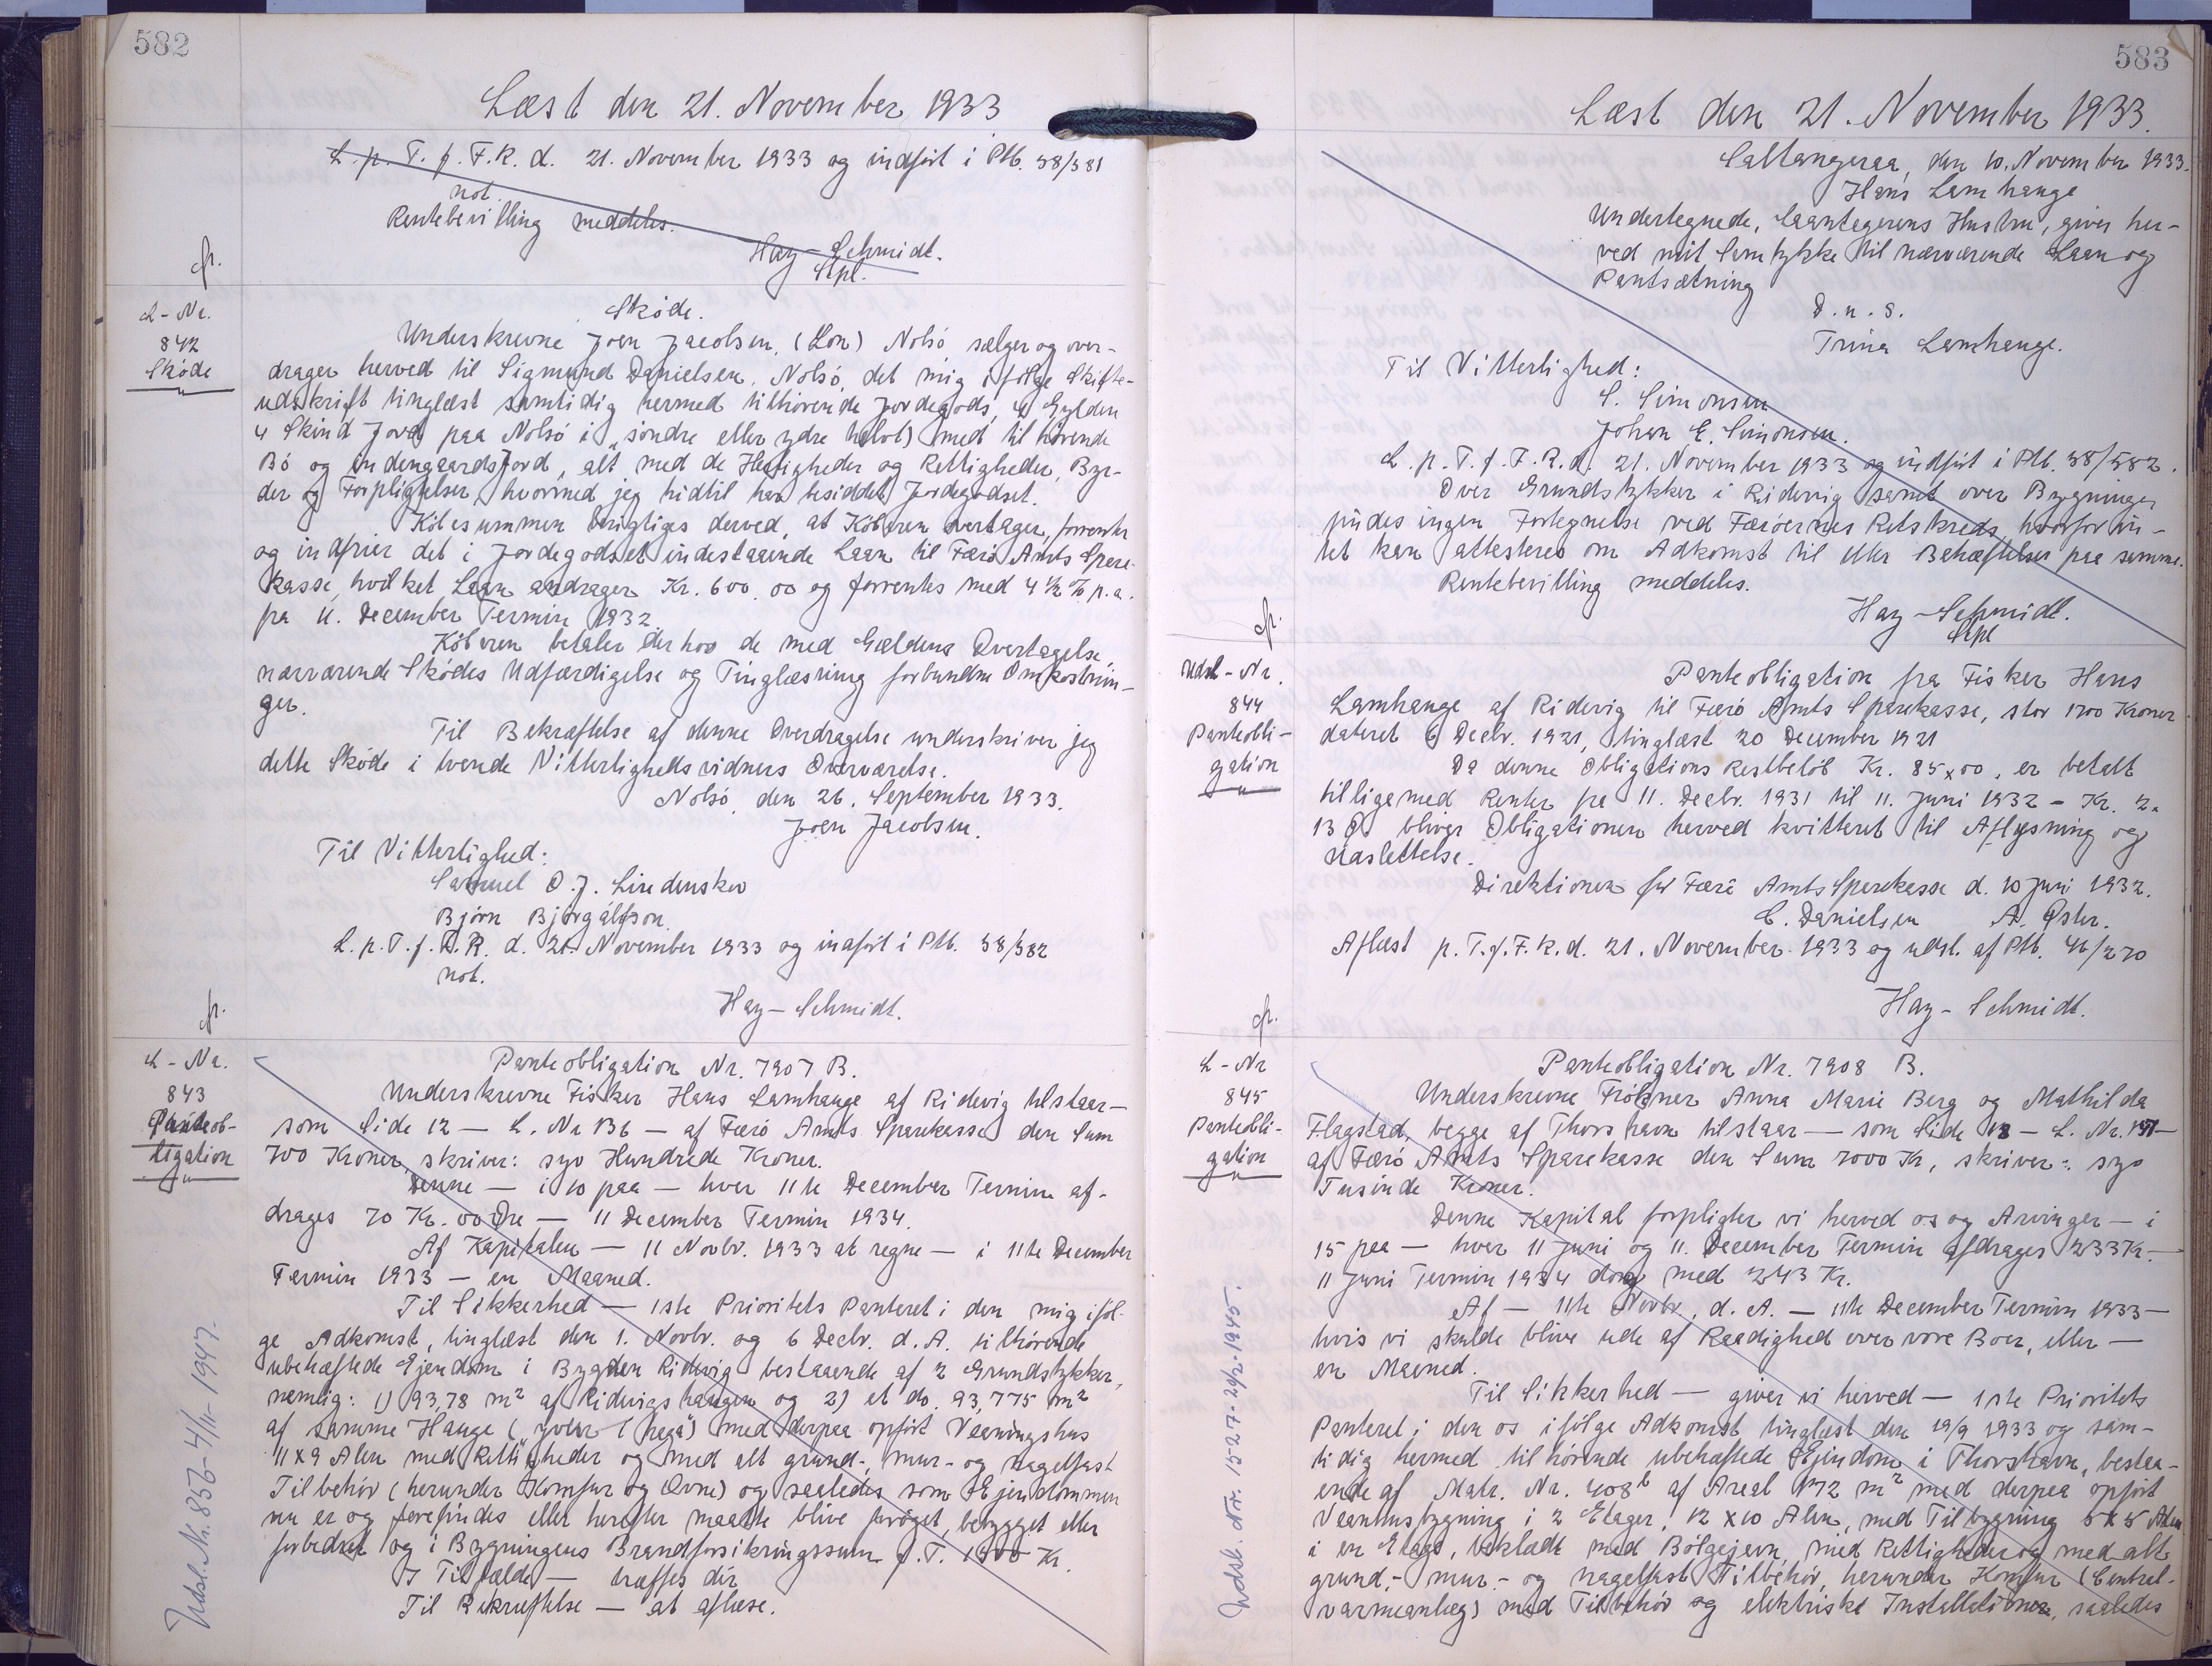 582
Læst den 21. November 1933
L. p. T. f. F. R. d. 21. November 1933 og indført i Ptb. 38/381
not.
Rentebevilling meddeles.
Hay-Schmidt.
Stpl.
fr.
L-Nr.
842
Skøde
Skøde.
Underskrevne Joen Jacobsen, (Lon) Nolsø sælger og over-
drager herved til Sigmund Danielsen, Nolsø, det mig ifølge Skifte-
udskrift tinglæst samtidig hermed tilhørende Jordegods, 4 Gylden
4 Skind Jord paa Nolsø i "søndre eller ydre halvt) med tilhørende
Bø og indengaardsjord, alt med de Herligheder og Rettigheder, Byr-
der og Forpligtelser, hvormed jeg hidtil har besiddet Jordegodset.
Købesummen berigtiges derved, at Køberen overtager, forrenter
og indfrier det i Jordegodset indestaaende Laan til Færø Amts Spare-
kasse, hvilket Laan andrager Kr. 600,00 og forrentes med 4 1/2 % p.a.
fra 11. December Termin 1932.
Køberen betaler derhos de med Gældens Overtagelse,
nærværende Skødes Udfærdigelse og Tinglæsning forbundne Omkostnin-
ger.
Til Bekræftelse af denne Overdragelse underskriver jeg
dette Skøde i tvende Vitterlighedsvidners Overværelse.
Nolsø, den 26. September 1933.
Joen Jacobsen.
Til Vitterlighed:
Samuel O. J. Lindenskov
Bjørn Bjørgálfson.
L. p. T. f. F. R. d. 21. November 1933 og indført i Ptb. 38/382
not.
Hay-Schmidt.
fr.
L-Nr.
843
Panteob-
ligation
Panteobligation Nr. 7907 B.
Underskrevne Fisker Hans Lamhauge af Ridevig tilstaar—
som Side 12 — L. Nr B6 — af Færø Amts Sparekasse den Sum
700 Kroner, skriver: syv Hundrede Kroner.
Denne — i 10 paa — hver 11te December Termin af-
drages 70 Kr. 00 Øre — 11 December Termin 1934.
Af Kapitalen — 11 Novbr. 1933 at regne — i 11te December
Termin 1933 — en Maaned.
Til Sikkerhed — 1ste Prioritets Panteret i den mig iføl-
ge Adkomst, tinglæst den 1. Novbr. og 6 Decbr. d. A. tilhørende
ubehæftede Ejendom i Bygden Ridevig bestaaende af 2 Grundstykker,
nemlig: 1) 93,78 m² af Ridevigshaugen og 2) et do. 93,775 m²
af samme Hauge med derpaa opført Vaaningshus
11 x 9 Alen med Rettigheder og med alt grund-, mur- og nagelfast
Tilbehør (herunder Komfur og Ovne) og saaledes som Ejendommen
nu er og forefindes eller herefter maatte blive forøget, bebygget eller
forbedret og i Bygningens Brandforsikringssum p. T. 1500 Kr.
I Tilfælde — træffes dir
Til Bekræftelse — at aflæse.
Udsl. Nr. 856 - 4/11 - 1947.
583
Læst den 21. November 1933.
Saltangeraa, den 10. November 1933.
Hans Lamhauge
Undertegnede, Laantagerens Hustru, giver her-
ved mit Samtykke til nærværende Laan og
Pantsætning
D. u. S.
Trina Lamhauge.
Til Vitterlighed:
S. Simonsen
Johan E. Simonsen.
L. p. T. f. F. R. d. 21. November 1933 og indført i Ptb. 38/582.
Over Grundstykker i Ridevig samt over Bygninger
findes ingen Fortegnelse ved Færøernes Retskreds, hvorfor in-
tet kan attesteres om Adkomst til eller Behæftelser paa samme.
Rentebevilling meddeles.
Hay-Schmidt.
Stpl
fr.
Udsl-Nr.
844
Panteobli-
gation
Panteobligation fra Fisker Hans
Lamhauge af Ridevig til Færø Amts Sparekasse, stor 1700 Kroner
dateret 6 Decbr. 1921, tinglæst 20 December 1921
Da denne Obligations Restbeløb Kr. 85 x 00, er betalt
tilligemed Renter fra 11. Decbr. 1931 til 11. Juni 1932 - Kr. 2.
13 Ø bliver Obligationen herved kvitteret til Aflysning og
Udslettelse.
Direktionen for Færö Amts Sparekasse d. 10 Juni 1932.
C. Danielsen A. Øster.
Aflæst p. T. f. F. R. d. 21. November 1933 og udsl. af Ptb. 46/270
Hay-Schmidt.
fr.
L-Nr
845
Panteobli-
gation
Panteobligation Nr. 7908 B.
Underskrevne Frøkner Anna Marie Berg og Mathilda
Flagstad, begge af Thorshavn tilstaar — som Side 12 — L. Nr. 137—
af Færø Amts Sparekasse den Sum 7000 Kr, skriver: syv
Tusinde Kroner.
Denne Kapital forpligter vi herved os og Arvinger — i
15 paa — hver 11 Juni og 11. December Termin afdrages 233 Kr. —
11 Juni Termin 1934 dog med 243 Kr.
Af — 11te Novbr. d. A. — 11te December Termin 1933 —
hvis vi skulde blive ude af Raadighed over vore Boer, eller —
en Maaned.
Til Sikkerhed — giver vi herved — 1ste Prioritets
Panteret i den os ifølge Adkomst tinglæst den 19/9 1933 og sam-
tidig hermed tilhørende ubehæftede Ejendom i Thorshavn, bestaa-
ende af Matr. Nr. 408b af Areal 172 m² med derpaa opført
Vaaningsbygning i 2 Etager, 12 x 10 Alen, med Tilbygning 5 x 5 Alen
i en Etage, beklædt med Bølgejern, med Rettigheder og med alt
grund-, mur- og nagelfast Tilbehør, herunder Komfur (Central-
varmeanlæg) med Tilbehør og elektriske Installationer, saaledes
Udsl. Nr. 1527 - 24/2 - 1945.